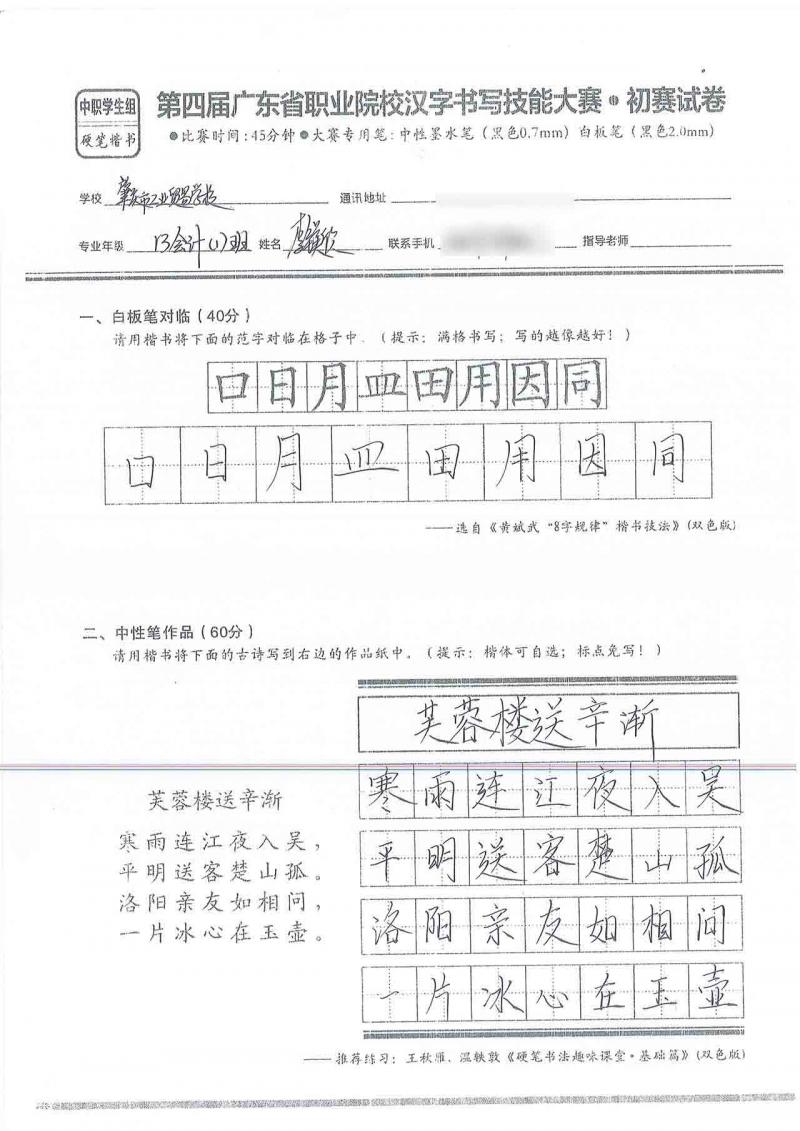 中职学生组
硬笔楷书
第四届广东省职业院校汉字书写技能大赛·初赛试卷
●比赛时间:45分钟●大赛专用笔:中性墨水笔(黑色0.7mm)白板笔(黑色2.0mm)
学校 肇庆市工业贸易学校 通讯地址
专业年级 13会计(1)班 姓名 联系手机 指导老师
一、白板笔对临(40分)
请用楷书将下面的范字对临在格子中.(提示:满格书写;写的越像越好!)
口日月皿田用因同
口日月皿田用因同
——选自《黄斌武“8字规律”楷书技法》(双色版)
二、中性笔作品(60分)
请用楷书将下面的古诗写到右边的作品纸中。(提示:楷体可自选;标点免写!)
芙蓉楼送辛渐
寒雨连江夜入吴,
平明送客楚山孤。
洛阳亲友如相问,
一片冰心在玉壶。
芙蓉楼送辛渐
寒雨连江夜入吴
平明送客楚山孤
洛阳亲友如相问
一片冰心在玉壶
——推荐练习:王秋雁、温轶敦《硬笔书法趣味课堂·基础篇》(双色版)